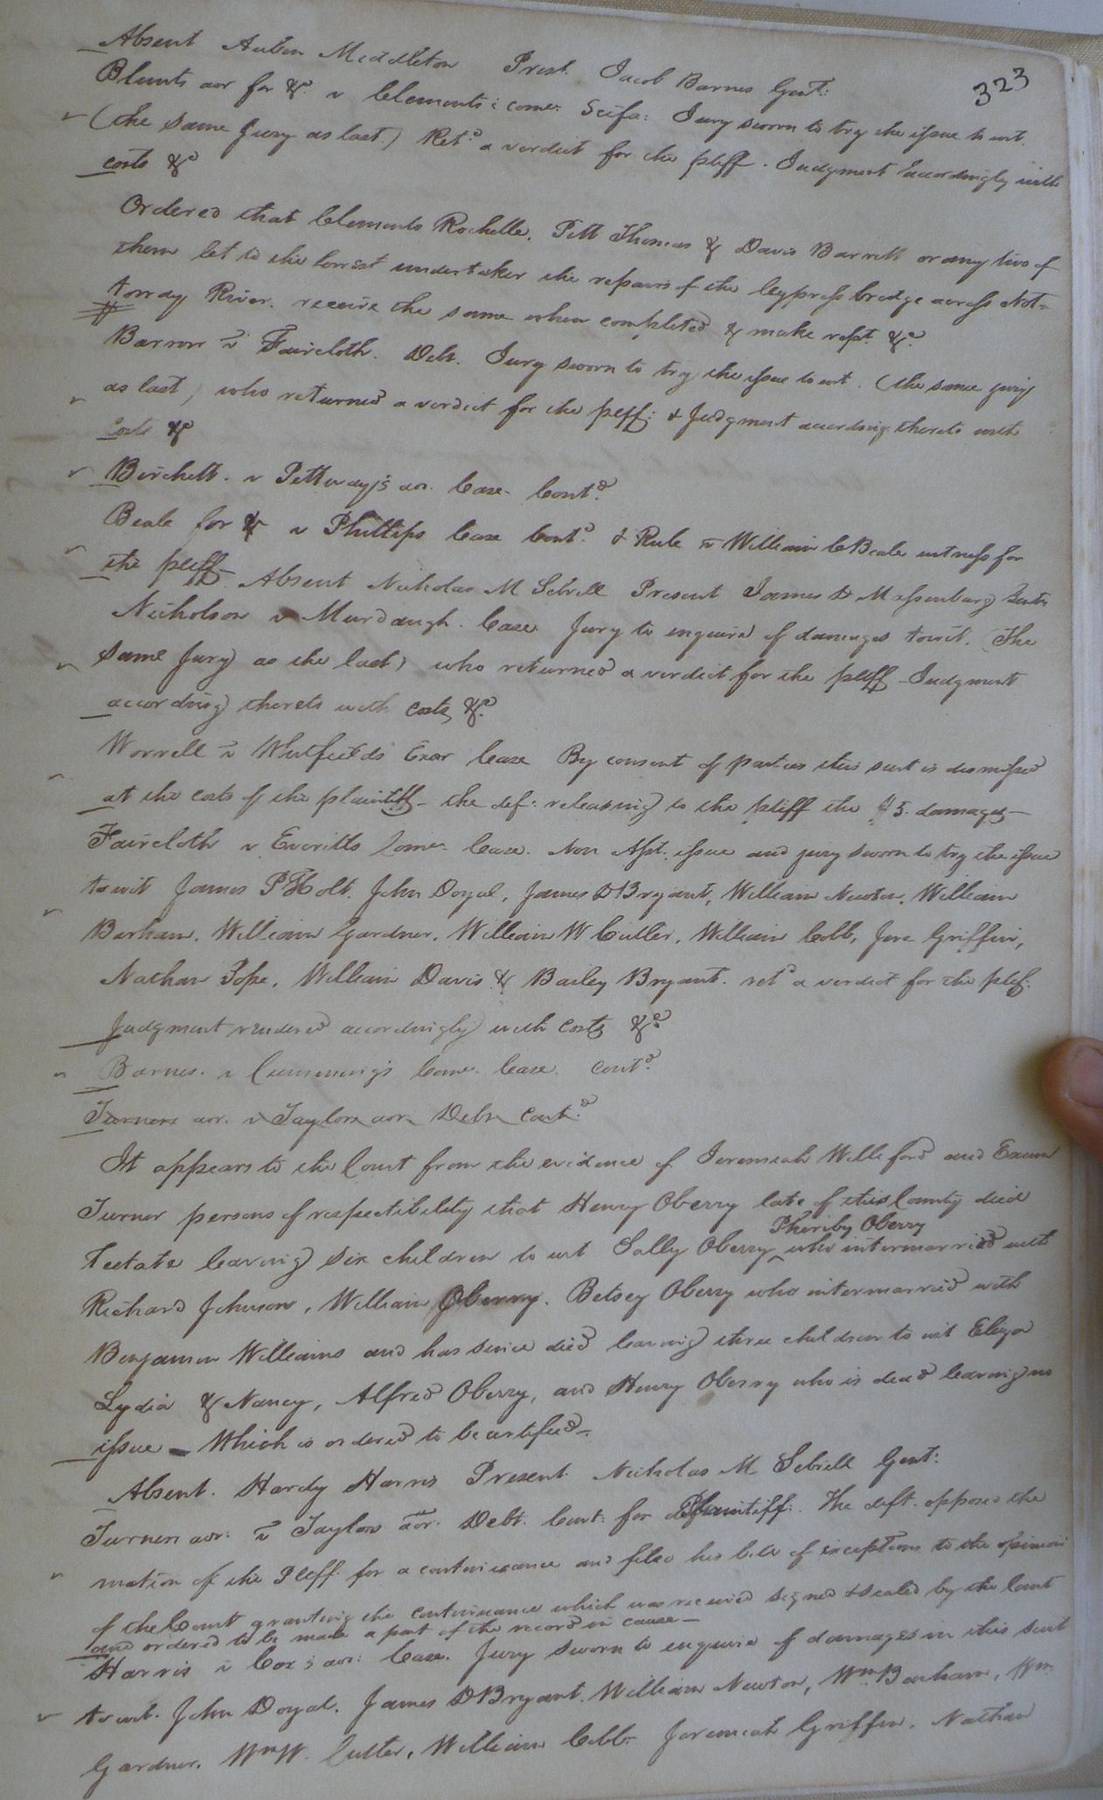 323
Absent Aubin Middleton Prest. Jacob Barnes Gent:
Blunts aor for &c. v Clements: comr. Scifa: Jury sworn to try the issue to wit.
(the same Jury as last.) Retd a verdict for the pleff. Judgment accordingly with
costs &c
Ordered that Clements Rochelle, Pitt Thomas & Davis Barrett or any two of
them let to the lowest undertaker the repairs of the Cypress bridge across Not-
toway River. receive the same when completed & make rept. &c
Barrow v Faircloth. Debt. Jury sworn to try the issue to wit. (the same jury
as last) who returned a verdict for the pleff: & Judgment according thereto with
Costs &c
Birchett. v Pettway's aor. Case. Contd.
Beale for &c v Phillips Case Contd. & Rule v William C Beale witness for
the pleff. Absent Nicholas M Sebrell Present James D Massenburg Gents
Nicholson v Murdaugh. Case. Jury to enquire of damages towit. (The
same Jury as the last) who returned a verdict for the pleff. Judgment
according thereto with costs &c.
Worrell v Whitfields Exor Case By consent of parties this suit is dismissed
at the costs of the plaintiff - the def: releasing to the pltff the $5. damages -
Faircloth v Everitts Comr. Case. Non Asst. issue and jury sworn to try the issue
towit James P Holt, John Doyal, James D Bryant, William Newton, William
Barham, William Gardner, William W Cutler, William Cobb, Jere Griffin,
Nathan Pope, William Davis & Bailey Bryant. retd a verdict for the plef:
Judgment rendered accordingly with costs &c.
Barnes. v Cummings Comr. Case. contd.
Turners aor. v Taylors aor. Debt contd.
It appears to the Court from the evidence of Jeremiah Williford and Exum
Turner persons of respectibility that Henry Oberry late of this County died
Testate leaving six children to wit Sally Oberry, Pheriby Oberry who intermarried with
Richard Johnson, William Oberry. Betsey Oberry who intermarried with
Benjamin Williams and has since died leaving three children to wit Eliza
Lydia & Nancy, Alfred Oberry, and Henry Oberry who is dead leaving no
issue - Which is ordered to be certified -
Absent. Hardy Harris Present Nicholas M Sebrell Gent:
Turners aor: v Taylors aor. Debt. Cont: for Plaintiff. The deft. opposed the
motion of the Pleff. for a continuance and filed his bill of exceptions to the opinion
of the Court granting the continuance which was received signed & sealed by the Court
and ordered to be made a part of the record in cause -
Harris v Cox's aor: Case. Jury sworn to enquire of damages in this suit
towit. John Doyal, James D Bryant, William Newton, Wm Barham, Wm
Gardner, Wm W. Cutler, William Cobb, Jeremiah Griffin, Nathan